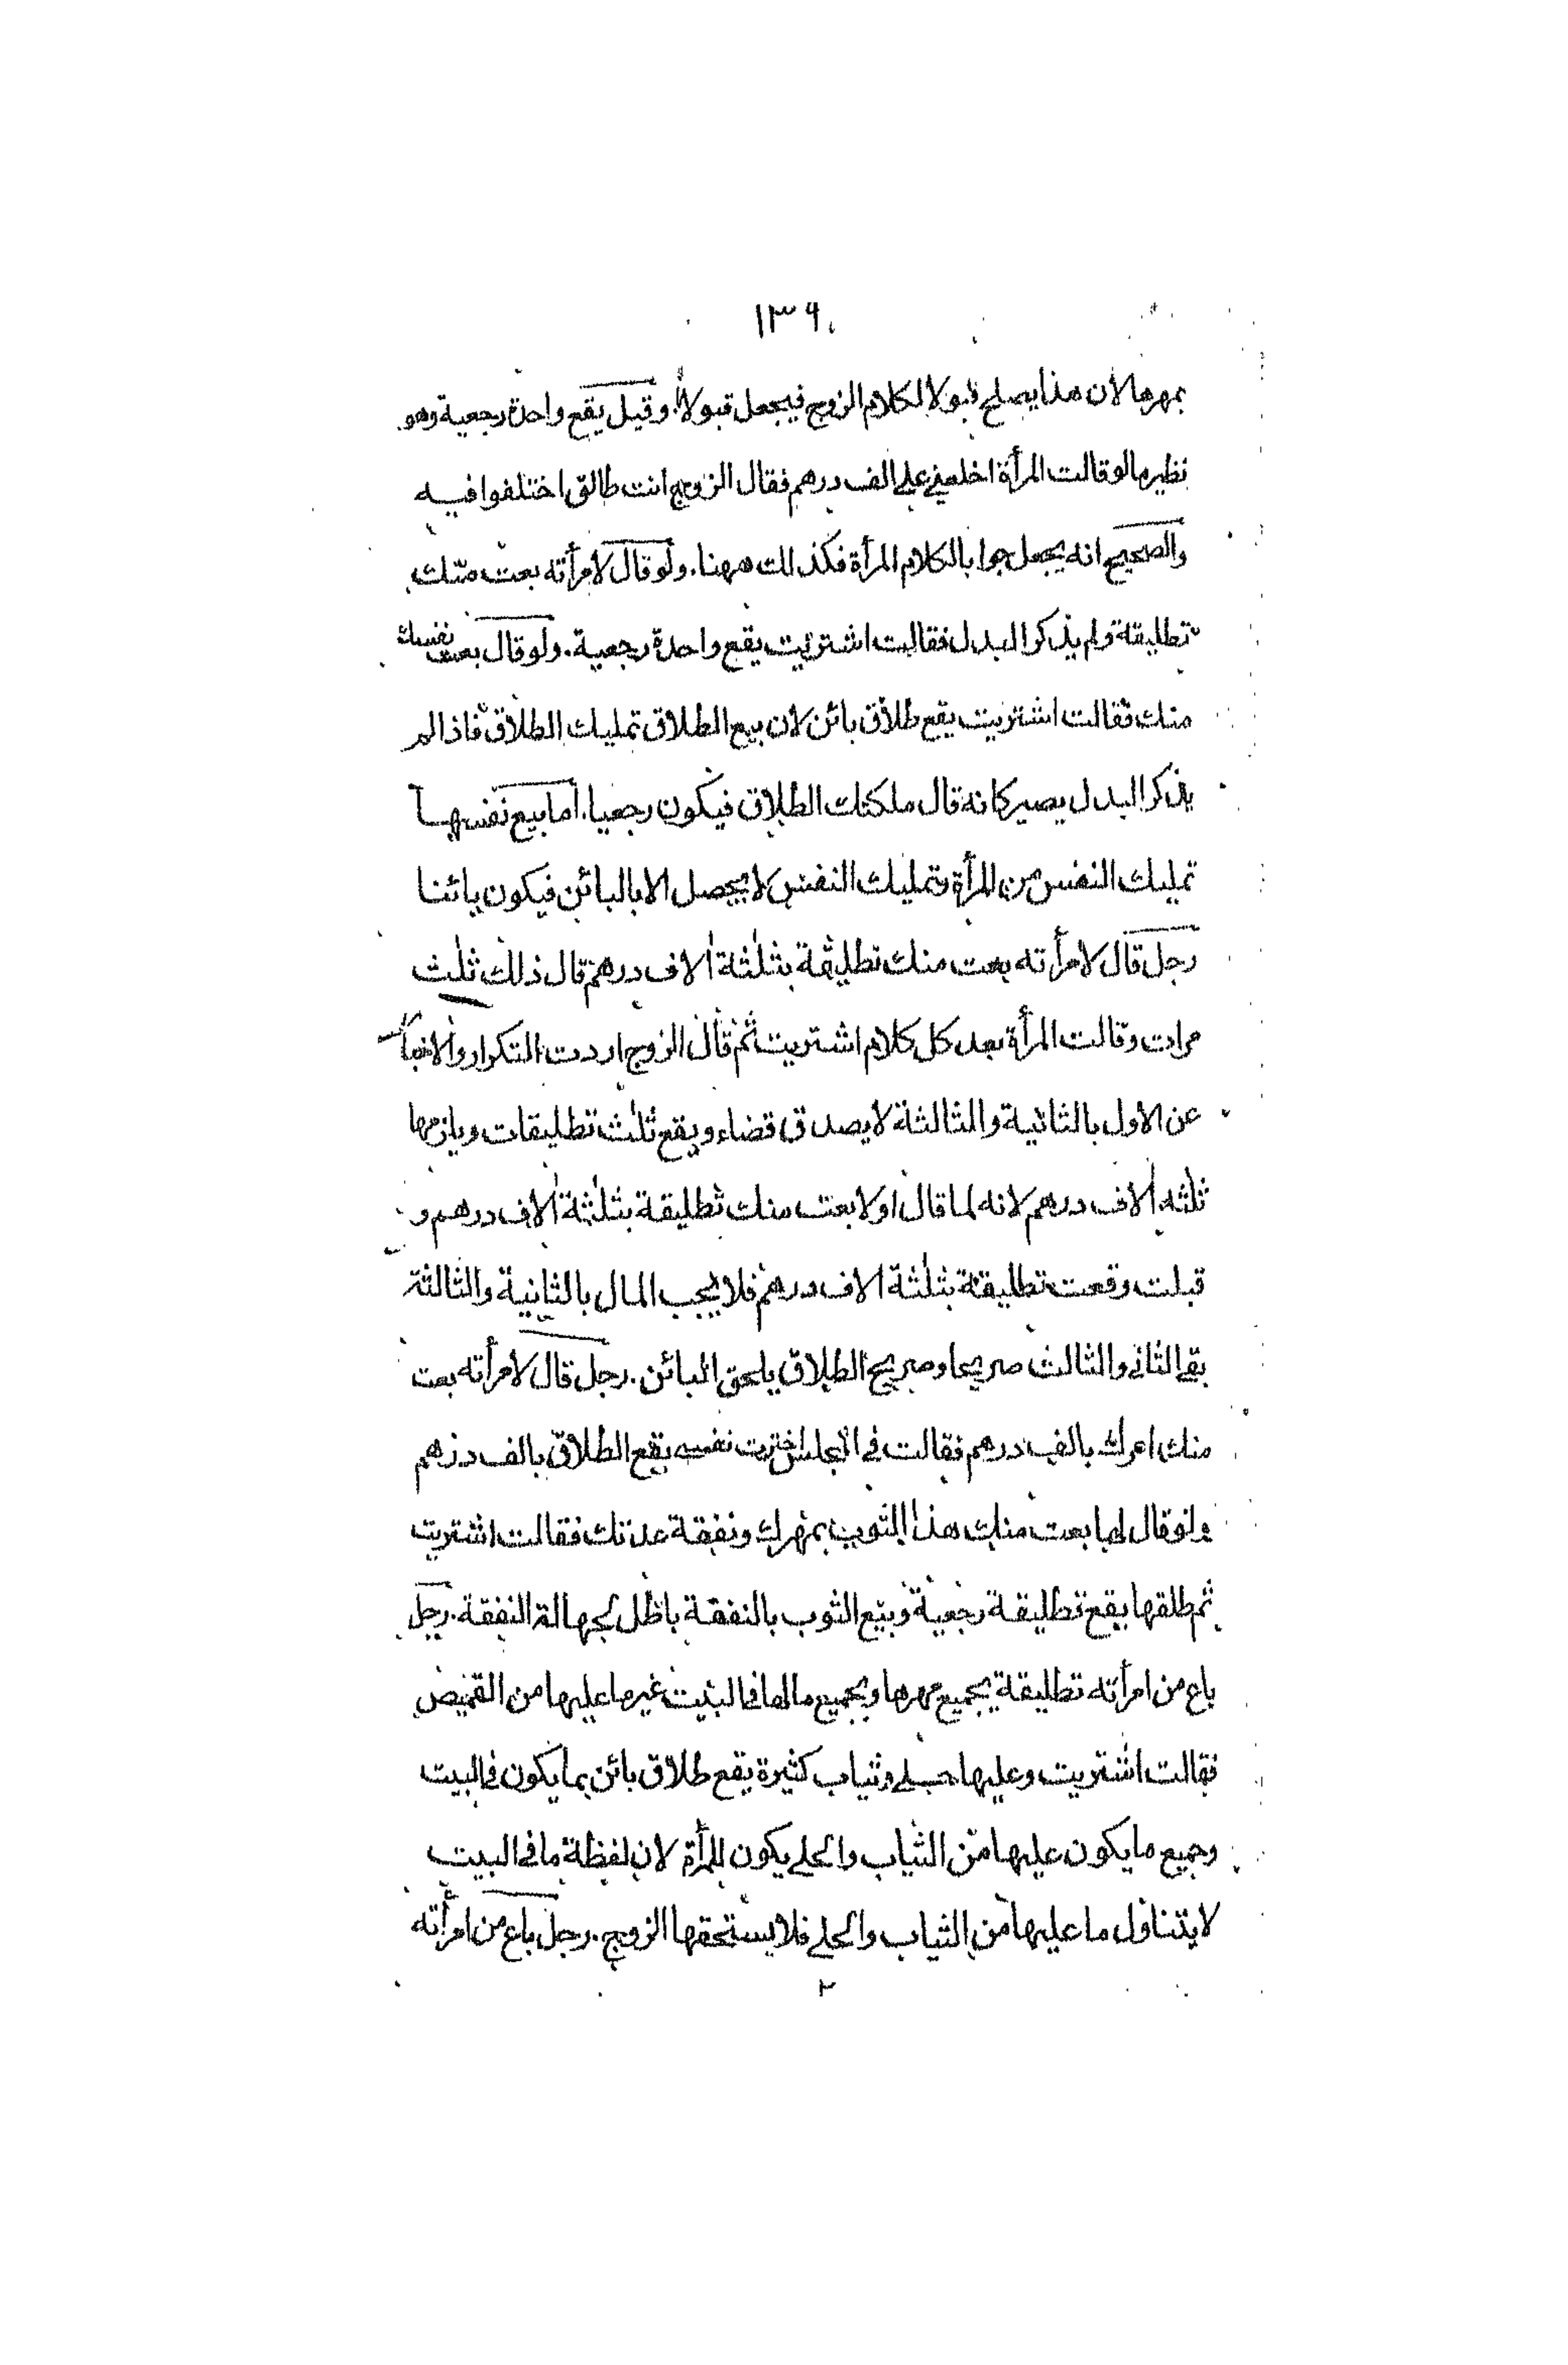 ١٣٩
بمهرها لان هذا يصلح قبولا لكلام الزوج فيجعل قبولا. وقيل يقع واحدة رجعية وهو
نظير ما لو قالت المرأة اخلعني على الف درهم فقال الزوج انت طالق اختلفوا فيه
والصحيح انه يجعل جوابا لكلام المرأة فكذلك ههنا. ولو قال لامرأته بعت منك
تطليقة ولم يذكر البدل فقالت اشتريت يقع واحدة رجعية. ولو قال بعت نفسك
منك فقالت اشتريت يقع طلاق بائن لان بيع الطلاق تمليك الطلاق فاذا لم
يذكر البدل يصير كانه قال ملكتك الطلاق فيكون رجعيا. اما بيع نفسها
تمليك النفس من المرأة وتمليك النفس لا يحصل الا بالبائن فيكون بائنا
رجل قال لامرأته بعت منك تطليقة بثلٰثة اٰلاف درهم قال ذلك ثلٰث
مرات وقالت المرأة بعد كل كلام اشتريت ثم قال الزوج اردت التكرار والاخبار
عن الاول بالثانية والثالثة لا يصدق قضاء ويقع ثلٰث تطليقات ويلزمها
ثلٰثه اٰلاف درهم لانه لما قال اولا بعت منك تطليقة بثلٰثة اٰلاف درهم و
قبلت وقعت تطليقة بثلٰثة الاف درهم فلا يجب المال بالثانية والثالثة
بقي الثاني والثالث صريحا وصريح الطلاق يلحق البائن. رجل قال لامرأته بعت
منك امرك بالف درهم فقالت في المجلس اخترت نفسي يقع الطلاق بالف درهم
ولو قال لها بعت منك هذا الثوب بمهرك ونفقة عدتك فقالت اشتريت
ثم طلقها يقع تطليقة رجعية وبيع الثوب بالنفقة باطل لجهالة النفقة. رجل
باع من امرأته تطليقة بجميع مهرها وبجميع ما لها في البيت غير ما عليها من القميص
فقالت اشتريت وعليها حلي وثياب كثيرة يقع طلاق بائن بما يكون في البيت
وجميع ما يكون عليها من الثياب والحلي يكون للمرأة لان لفظة ما في البيت
لا يتناول ما عليها من الثياب والحلي فلا يستحقها الزوج. رجل باع من امرأته